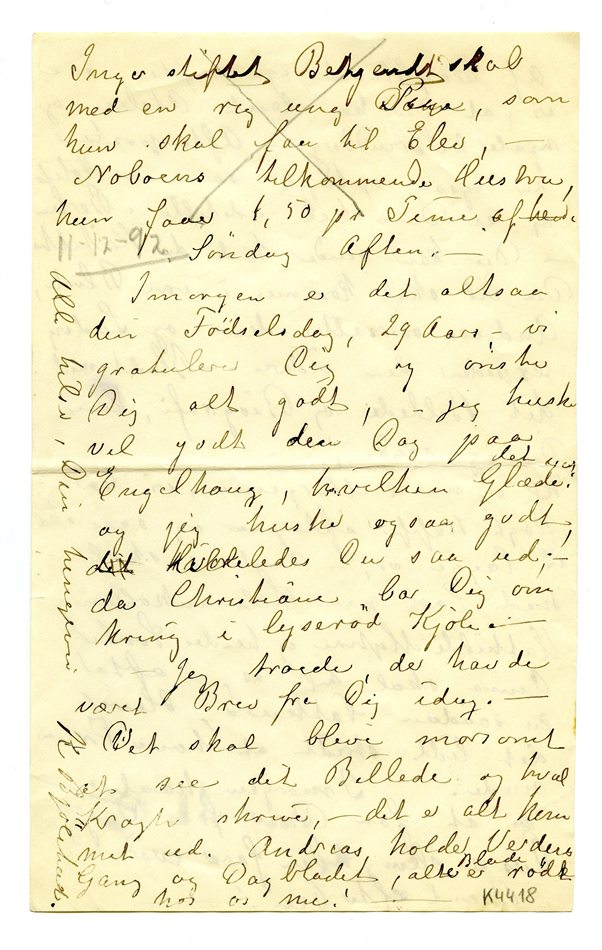 Inger stiftet Bekjendtskab
med en rig ung Pige, som
hun skal faa til Elev, —
Noboens tilkommende Hustru,
hun faar 1,50 pr Time
11-12-92
Søndag Aften. —
Imorgen er det altsaa
din Fødselsdag, 29 Aar, — vi
gratulerer Dig og ønske
Dig alt godt, — jeg huske
vel godt den Dag paa
Engelhaug, hvilken Glæde det var!
og jeg huske ogsaa godt,
hvorledes Du saa ud, —
da Christiane bar Dig om
kring i lyserød Kjole. —
Jeg troede, der havde
været Brev fra Dig idag. —
Det skal bleve morsomt
at see dit Billede og hvad
Krogh skrive, — det er alt kom
met ud. Andreas holder Verdens
Gang og Dagbladet, alle Blade er røde
hos os nu! —
Alle hilse, Din hengivne
K4418